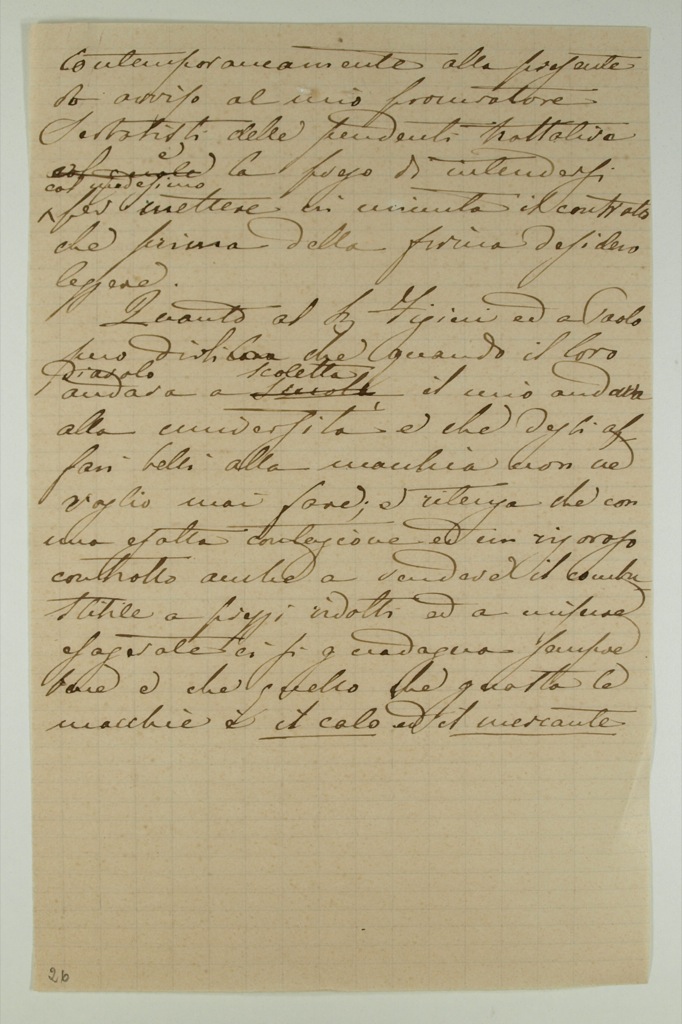 Contemporaneamente alla presente
do avviso al mio procuratore
delle pendenti trattative
col quale e la prego di intendersi
col medesimo
per mettere in minuta il contratto
che prima della firma desidero
leggere.
Quanto al Figini ed a Paolo
può dir che quando il loro
andava a scuola il mio andava
scoletta
alla università e che degli af
fari belli alla macchia non ne
voglio mai fare; e ritenga che con
una esatta contagione ed un rigoroso
controllo anche a vendere il combu
stibile a prezzi ridotti ed a misure
esagerate ci si guadagna sempre
bene e che quello che guasta le
macchie è il calo ed il mercante
26